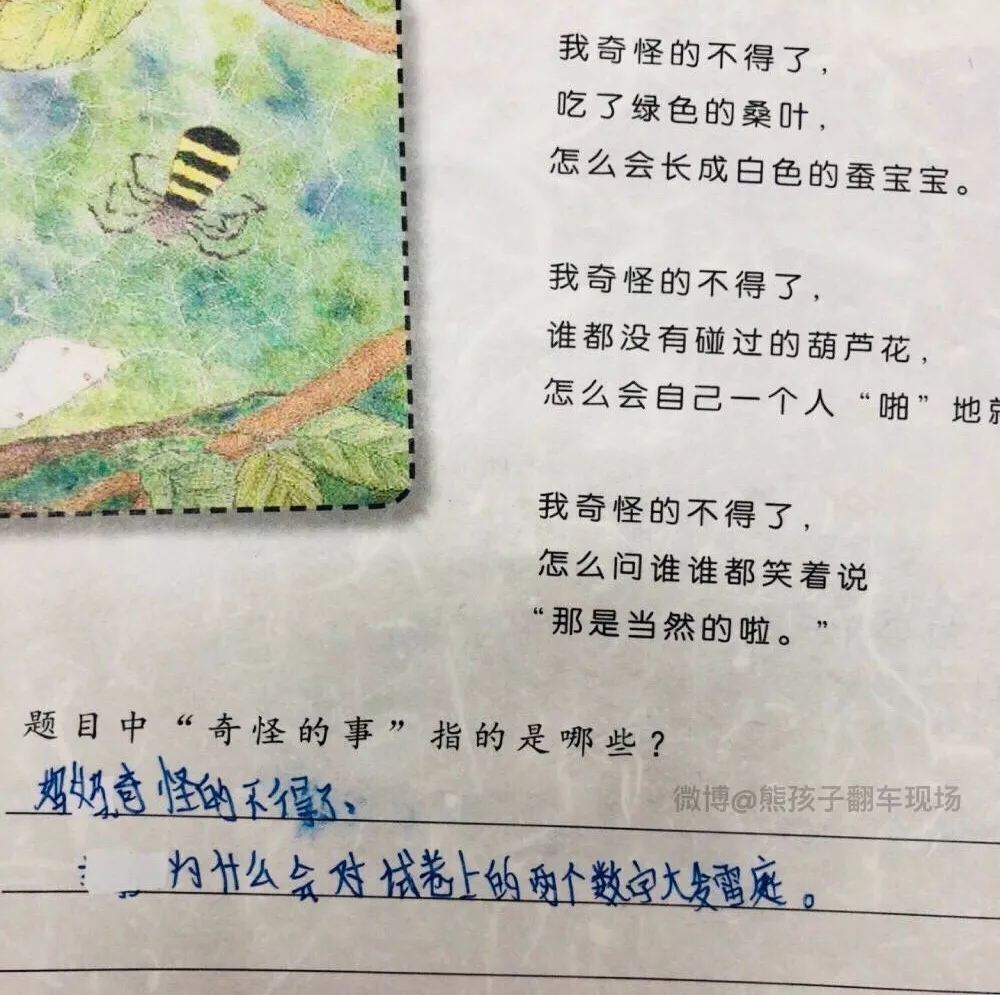 我奇怪的不得了，
吃了绿色的桑叶，
怎么会长成白色的蚕宝宝。
我奇怪的不得了，
谁都没有碰过的葫芦花，
怎么会自己一个人“啪”地就
我奇怪的不得了，
怎么问谁谁都笑着说
“那是当然的啦。”
题目中“奇怪的事”指的是哪些？
妈妈奇怪的不得了、
微博@熊孩子翻车现场
为什么会对试卷上的两个数字大发雷庭。